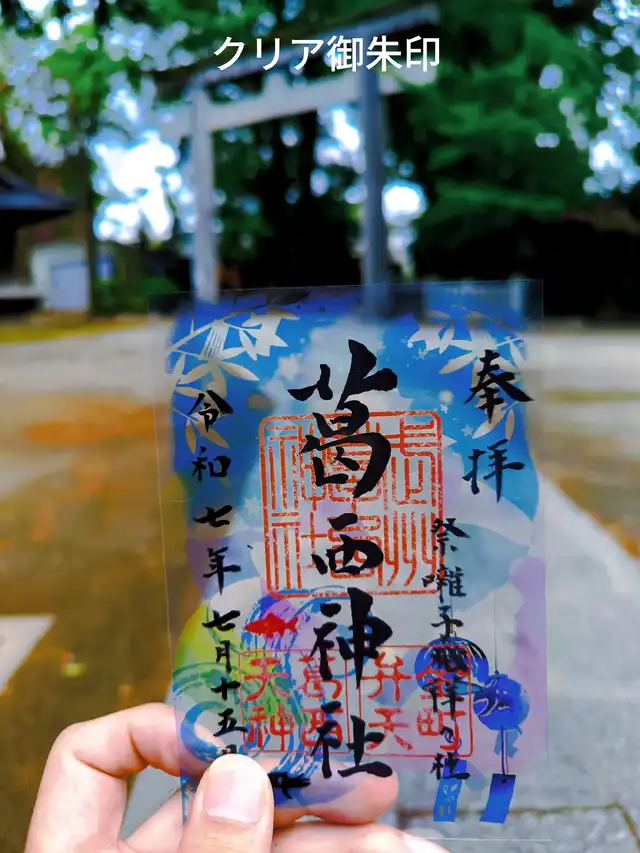 クリア御朱印
奉拝
祭囃子發祥の社
葛西神社
令和七年七月十五日
金町
弁天
葛西
天神